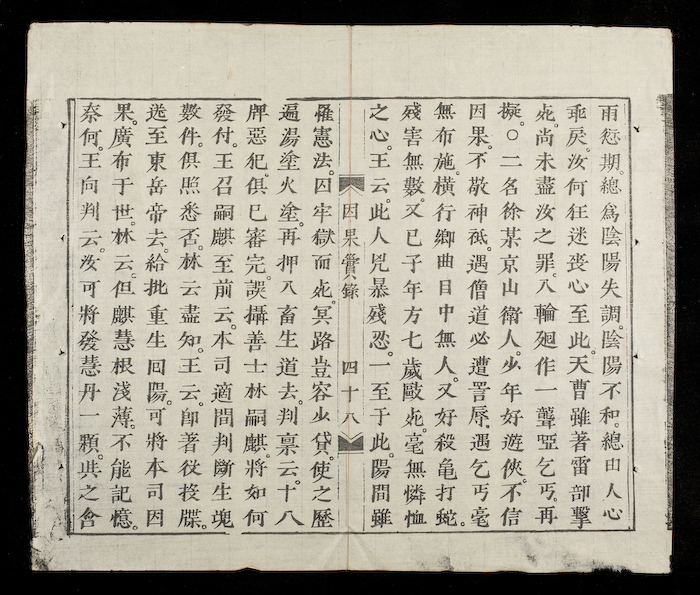 雨愆期。總爲陰陽失調。陰陽不和。總由人心
乖戾。汝何狂迷喪心至此。天曹雖著雷部擊
死。尚未盡汝之罪。入輪廻作一聾啞乞丐。再
擬。○二名徐某京山衛人。少年好遊俠。不信
因果。不敬神祗。遇僧道必遭詈辱。遇乞丐毫
無布施。橫行鄉曲目中無人。又好殺龜打蛇。
殘害無數。又已子年方七歲毆死。毫無憐恤
之心。王云。此人兇暴殘忍。一至于此。陽間雖
因果實錄 四十八
罹憲法。囚牢獄而死。冥路豈容少貸。使之歷
遍湯塗火塗。再押入畜生道去。判稟云。十八
牌惡犯。俱已審完。誤攝善士林嗣麒。將如何
發付。王召嗣麒至前云。本司適間判斷生魂
數件。俱照悉否。林云盡知。王云。卽著從投牒。
送至東岳帝去。給批重生回陽。可將本司因
果。廣布于世。林云。但麒慧根淺薄。不能記憶。
奈何。王向判云。汝可將發慧丹一顆。與之含